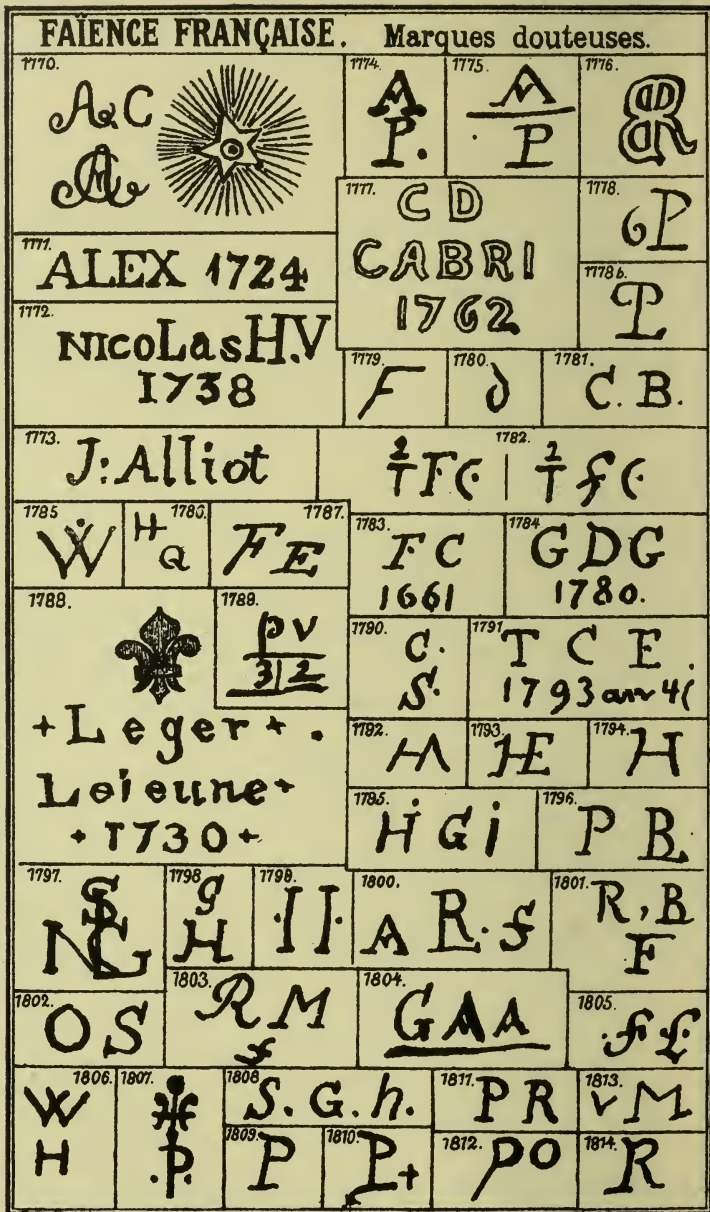 FAÏENCE FRANÇAISE. Marques douteuses.
1770.
A C
1774.
A
P.
1775.
A
P
1776.
1777.
C D
CABRI
1762
1778.
6P
1778b.
1771.
ALEX 1724
1772.
NICoLasH.V
1738
1779.
F
1780.
1781.
C. B.
1773.
J: Alliot
1782.
2
T F C
2
T f C
1785
W
1786.
H
Q
1787.
F E
1783.
F C
1661
1784
G D G
1780.
1788.
+ Leger + .
Leieune +
+ 1730 +
1789.
p v
3|2
1790.
C.
S.
1791
T C E .
1793
1792.
1793.
HE
1794.
H
1785.
H G i
1796.
P B
1797.
1798
g
H
1799.
·II·
1800.
A R. f
1801.
R, B
F
1802.
O S
1803.
R M
f
1804.
GAA
1805.
1806.
W
H
1807.
.P.
1808
S. G. h.
1809.
P
1810.
P+
1811.
P R
1812.
PO
1813.
v M
1814.
R